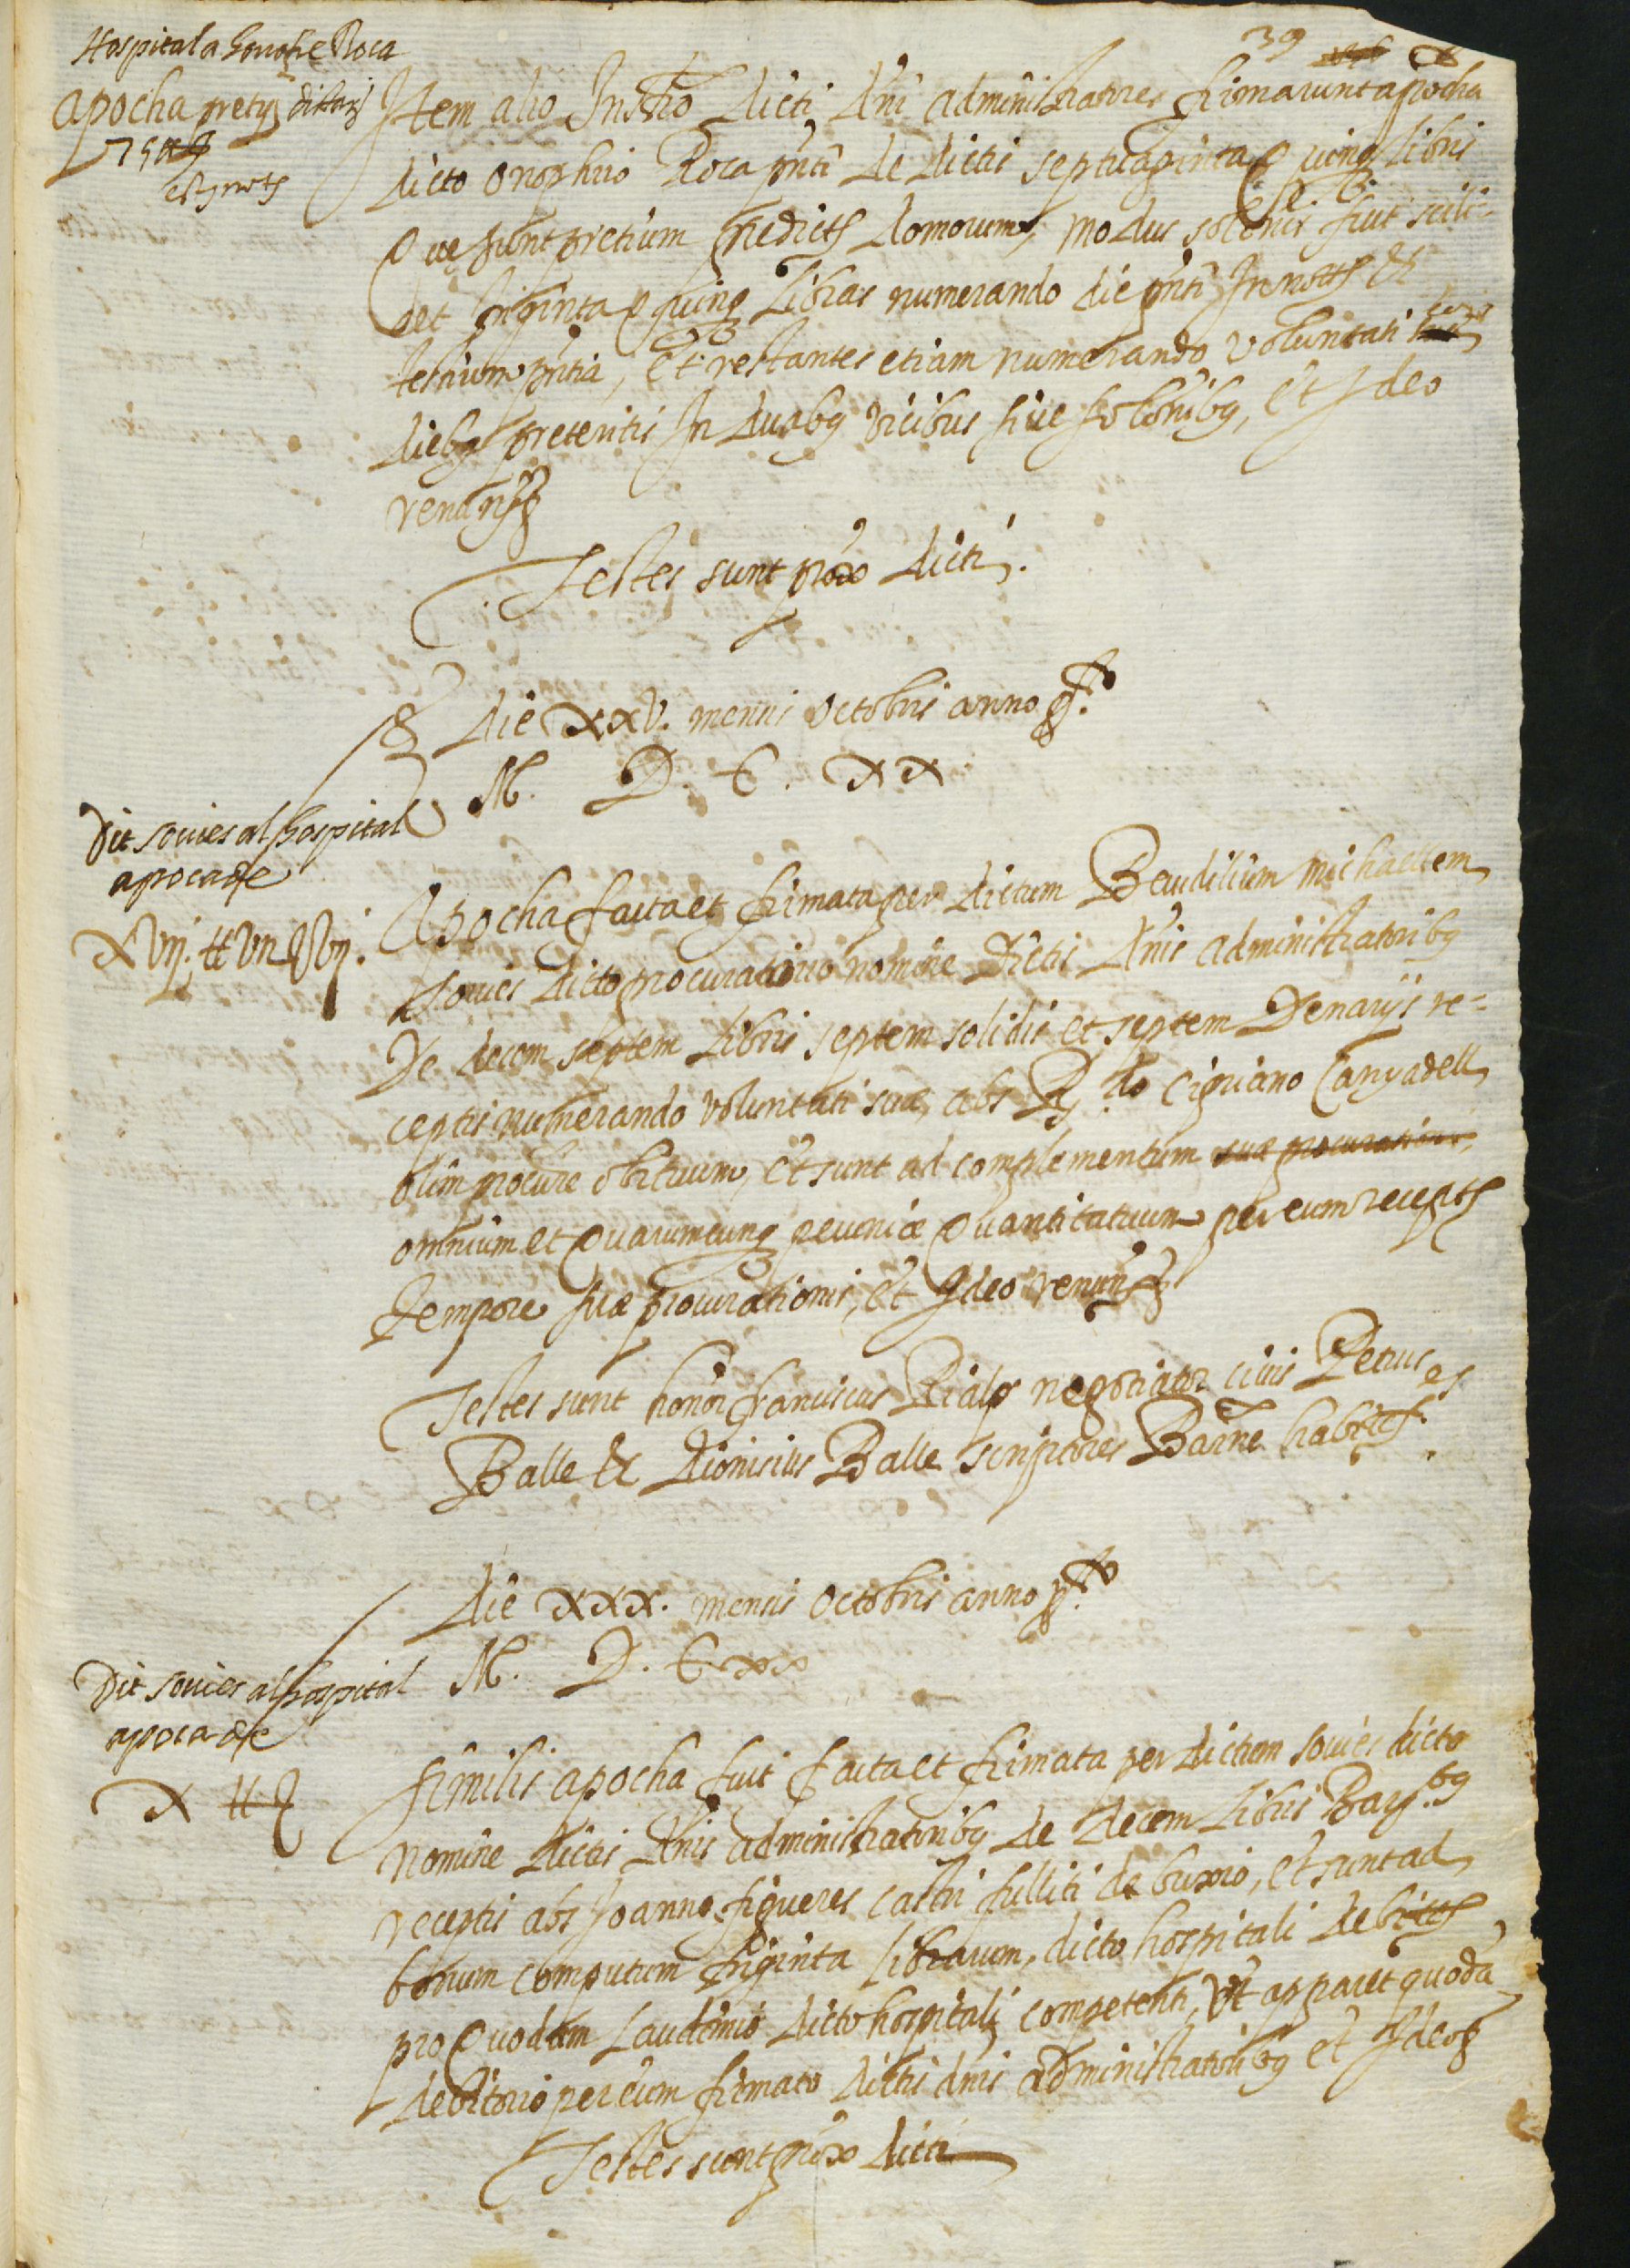 39
Hospital a honofre Roca
apocha pretij
75 ₶
Item alio Instro dicti dni administratores firmarunt apocha
dicto onophrio Roca pnti de dictis septuaginta quinq libris
Que sunt pretium predicts domorum, modus solonis fuit scili-
cet triginta quinq libras numerando die pnti In nots et
testium pntia, et restantes etiam numerando voluntati
diebq preteritis In duabq vicibus sive solonibq, et Ideo
renun
Testes sunt proxo dicti.
Die XXV. mensis octobris anno
M. D. C. XX
Dit sovies al hospital
apoca de
XVij. ₶ Vij
Apocha facta et firmata per dictum Baudilium michaelem
sovies dicto procuratorio nomine dictis dnis administratoribq
De decem septem libris septem solidis et septem Denarijs re-
ceptis numerando voluntati suæ, abs R. do Cipriano Canyadell
olim procure obituum, et sunt ad complementum suæ procurationis
omnium et quarumcunq pecuniæ quantitatum per eum recepts
tempore suæ procurationis, et Ideo renun
Testes sunt honor franciscus Rialp negotiator civis Petrus
Balle et dionisius Balle scriptores Barne habites.
Die XXX. mensis octobris anno
M. D. C. xx
Dit sovies al hospital
apoca de
X ₶
Similis apocha fuit facta et firmata per dictum sovies dicto
nomine dictis dnis administratoribq de decem libris
receptis abs Joanne figueres castri fulliti de buxio, et sunt ad
bonum computum triginta librarum, dicto hospitali debits
pro quodam laudimio dicto hospitali competenti, ut apparet quodã
debitorio per eum firmato dictis dnis administratoribq et Ideo
Testes sunt proxo dicti